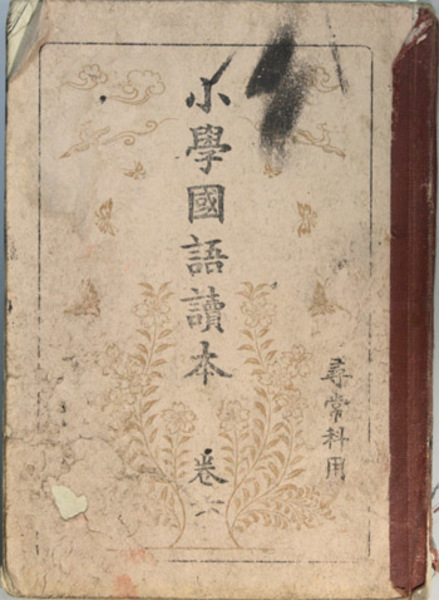 小學國語讀本　卷六
尋常科用